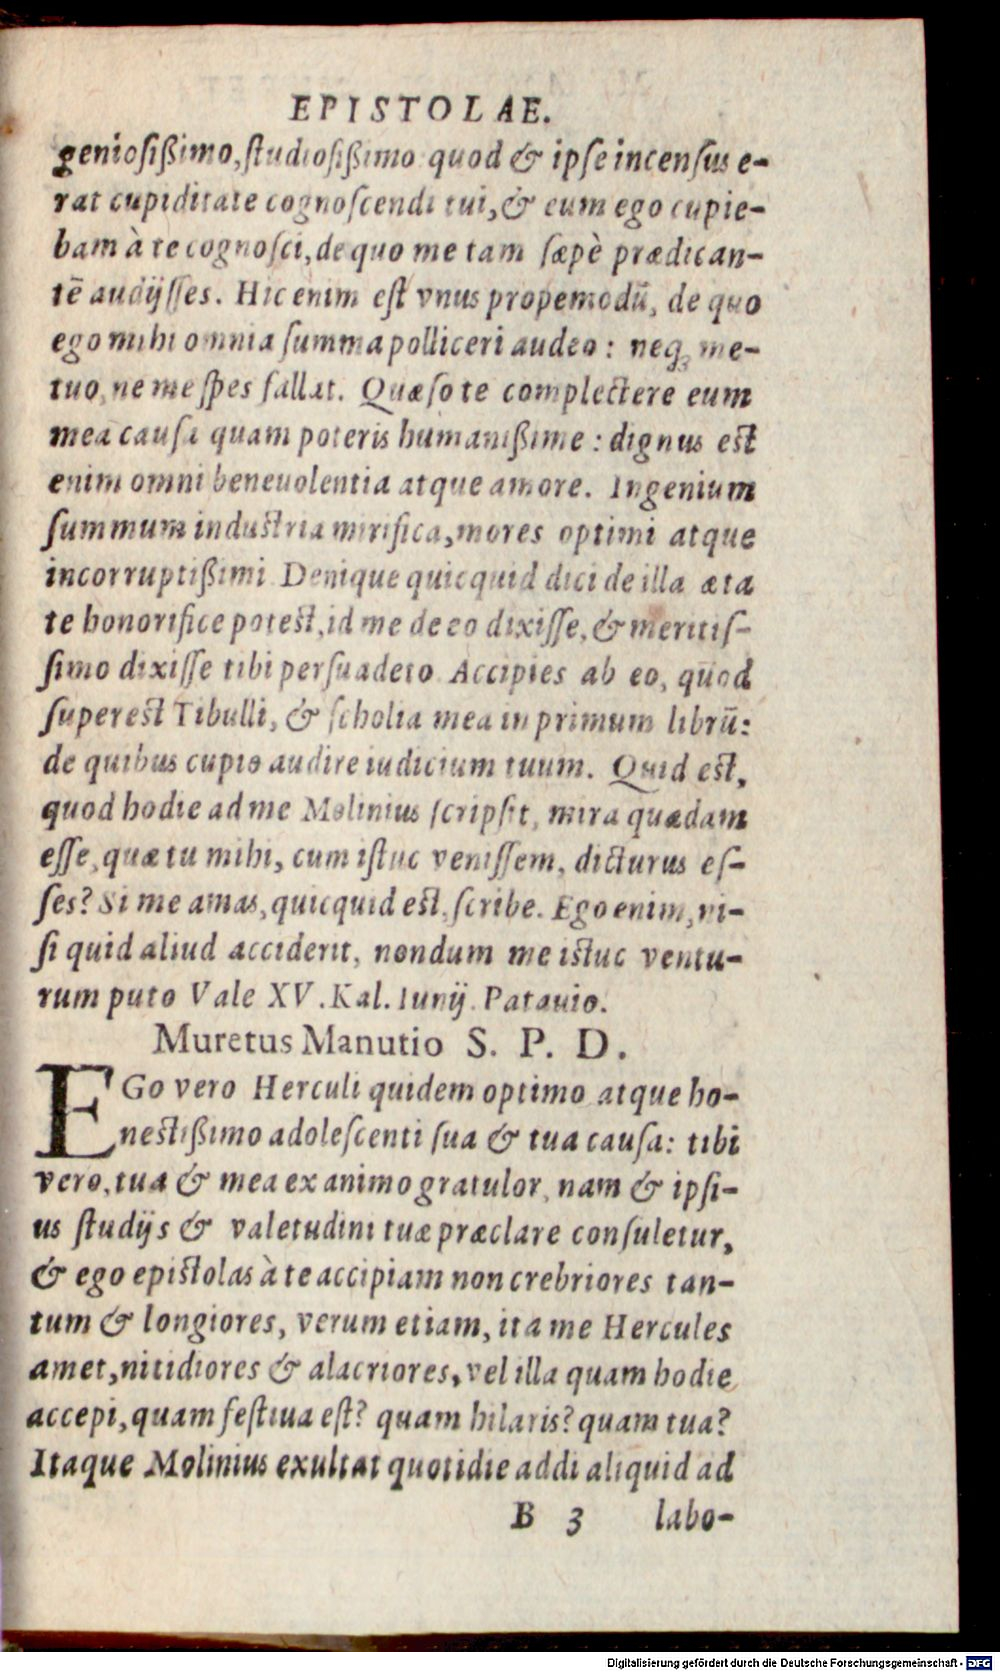 EPISTOLAE.
geniosißimo, ſtudioſißimo quod & ipſe incenſus e-
rat cupiditate cognoſcendi tui, & eum ego cupie-
bam à te cognoſci, de quo me tam ſæpè prædican-
tē audijſſes. Hic enim eſt vnus propemodū, de quo
ego mihi omnia ſumma polliceri audeo: neq; me-
tuo, ne me ſpes fallat. Quæſo te complectere eum
mea cauſa quam poteris humanißime: dignus eſt
enim omni beneuolentia atque amore. Ingenium
ſummum induſtria mirifica, mores optimi atque
incorruptißimi Denique quicquid dici de illa æta
te honorifice poteſt, id me de eo dixiſſe, & meritiſ-
ſimo dixiſſe tibi perſuadeto Accipies ab eo, quod
ſupereſt Tibulli, & ſcholia mea in primum librū:
de quibus cupio audire iudicium tuum. Quid eſt,
quod hodie ad me Molinius ſcripſit, mira quædam
eſſe, quæ tu mihi, cum iſtuc veniſſem, dicturus eſ-
ſes? Si me amas, quicquid eſt, ſcribe. Ego enim, ni-
ſi quid aliud acciderit, nondum me iſtuc ventu-
rum puto Vale XV. Kal. Iunij. Patauio.
Muretus Manutio S. P. D.
EGo vero Herculi quidem optimo atque ho-
neſtißimo adoleſcenti ſua & tua cauſa: tibi
vero, tua & mea ex animo gratulor, nam & ipſi-
us ſtudijs & valetudini tuæ præclare conſuletur,
& ego epiſtolas à te accipiam non crebriores tan-
tum & longiores, verum etiam, ita me Hercules
amet, nitidiores & alacriores, vel illa quam hodie
accepi, quam feſtiua eſt? quam hilaris? quam tua?
Itaque Molinius exultat quotidie addi aliquid ad
B 3 labo-
Digitalisierung gefördert durch die Deutsche Forschungsgemeinschaft - DFG